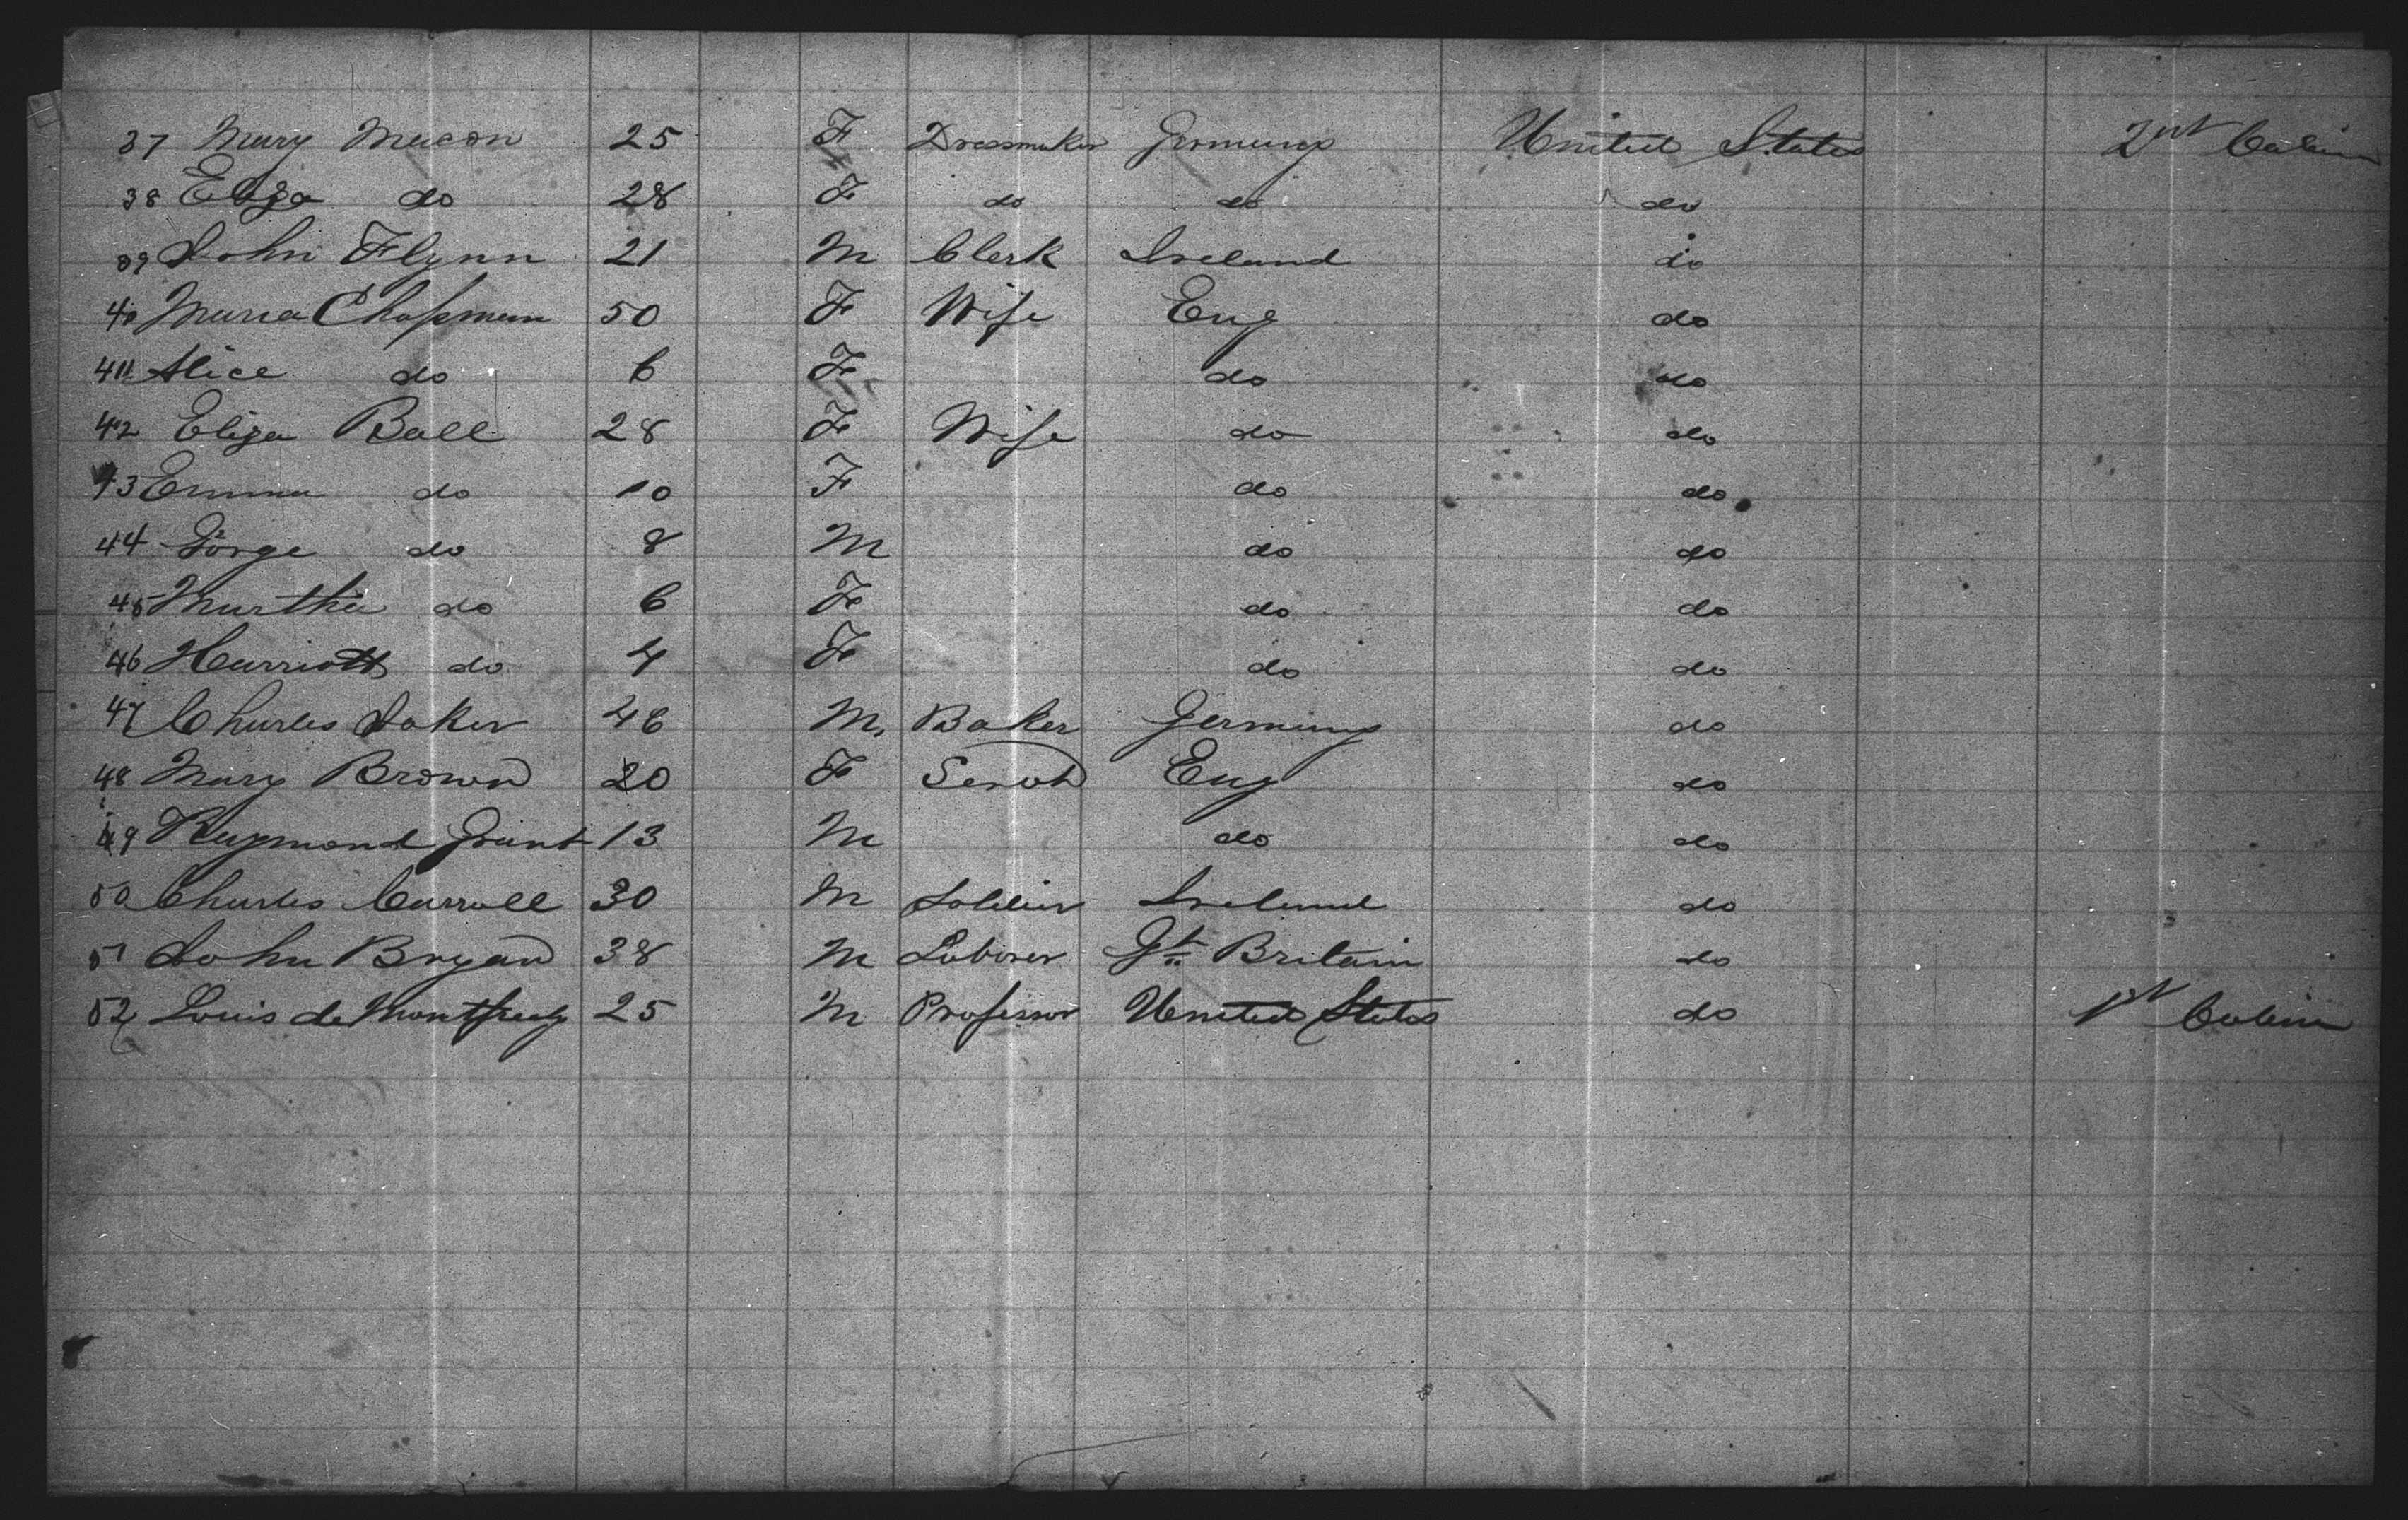 37 Mary Macon 25 F Dressmaker Germany United States 2nd Cabin
38 Eliza do 28 F do do do
39 John Flynn 21 M Clerk Ireland do
40 Maria Chapman 50 F Wife Eng do
41 Alice do 6 F do do
42 Eliza Ball 28 F Wife do do
43 Emma do 10 F do do
44 Görge do 8 M do do
45 Martha do 6 F do do
46 Harriott do 4 F do do
47 Charles 46 M. Baker Germany do
48 Mary Brown 20 F Servt Eng do
49 Raymond Grant 13 M do do
50 Charles Carroll 30 M Soldier Ireland do
51 John Bryan 38 M Laborer Gt Britain do
52 Louis de 25 M Professor United States do 1st Cabin